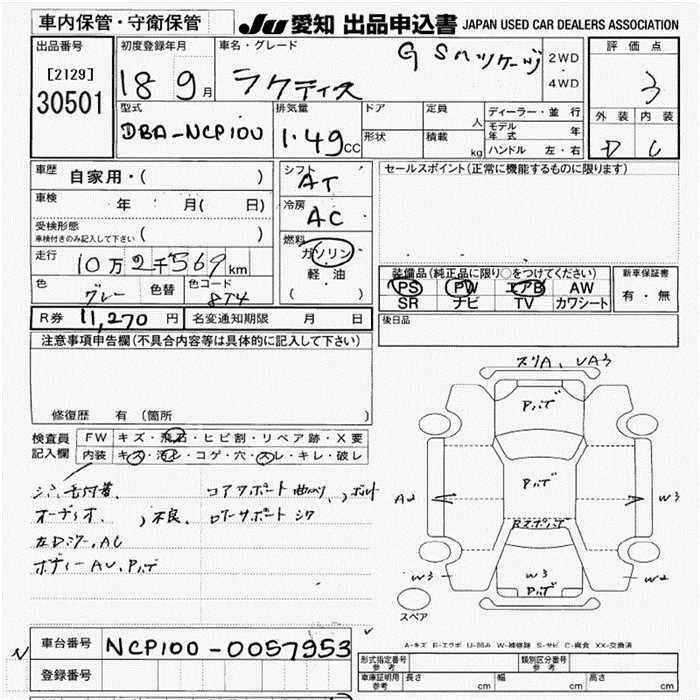 車内保管・守衛保管
JU 愛知 出品申込書 JAPAN USED CAR DEALERS ASSOCIATION
出品番号
[2129]
30501
初度登録年月
18 9月
車名・グレード
ラクティス
G Sパッケージ
2WD
4WD
評価点
3
外装 内装
D C
型式
DBA-NCP100
排気量
1.49cc
ドア
形状
定員
人
積載
kg
ディーラー・並行
モデル年式 年
ハンドル 左・右
車歴
自家用・( )
車検
年 月( 日)
受検形態
車検付きのみ記入して下さい ( )
走行
10万2千569km
色
グレー
色替
色コード
8T4
シフト
AT
冷房
AC
燃料
ガソリン
軽油
( )
セールスポイント(正常に機能するものに限ります)
装備品(純正品に限り○をつけてください)
PS PW エアB AW
SR ナビ TV カワシート
新車保証書
有・無
R券 11,270円
名変通知期限 月 日
後日品
注意事項申告欄(不具合内容等は具体的に記入して下さい)
修復歴 有(箇所
検査員記入欄
FW キズ・飛石・ヒビ割・リペア跡・X要
内装 キズ・汚レ・コゲ・穴・スレ・キレ・破レ
コアサポート 曲り、、ボルト
オーディオ、、不良、 ロアーサポート シワ
左Dミラー,A1
ボディーAU、Pハゲ
スリA、UA3
Pハゲ
Pハゲ
A2
W3
W3
W3
Pハゲ
W2
スペア
A-キズ E-エクボ U-凹み W-補修跡 S-サビ C-腐食 XX-交換済
車台番号
NCP100-0057953
登録番号
形式指定番号
参考
類別区分番号
参考
車庫証明用
参考
長さ cm
幅 cm
高さ cm